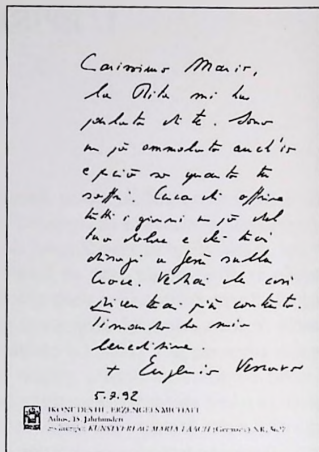 Carissimo Mario,
la Rita mi ha
parlato di te. Sono
un pò ammalato anch'io
e perciò so quanto tu
soffri. Cerca di offrire
tutti i giorni un pò del
tuo dolore e dei tuoi
disagi a Gesù sulla
Croce. Vedrai che così
diventerai più contento.
Ti mando la mia
benedizione.
+ Eugenio Vescovo
5.7.92
IKONE DES HL. ERZENGELS MICHAEL
Athos, 18. Jahrhundert
KUNSTVERLAG MARIA LAACH (Germany) NR.